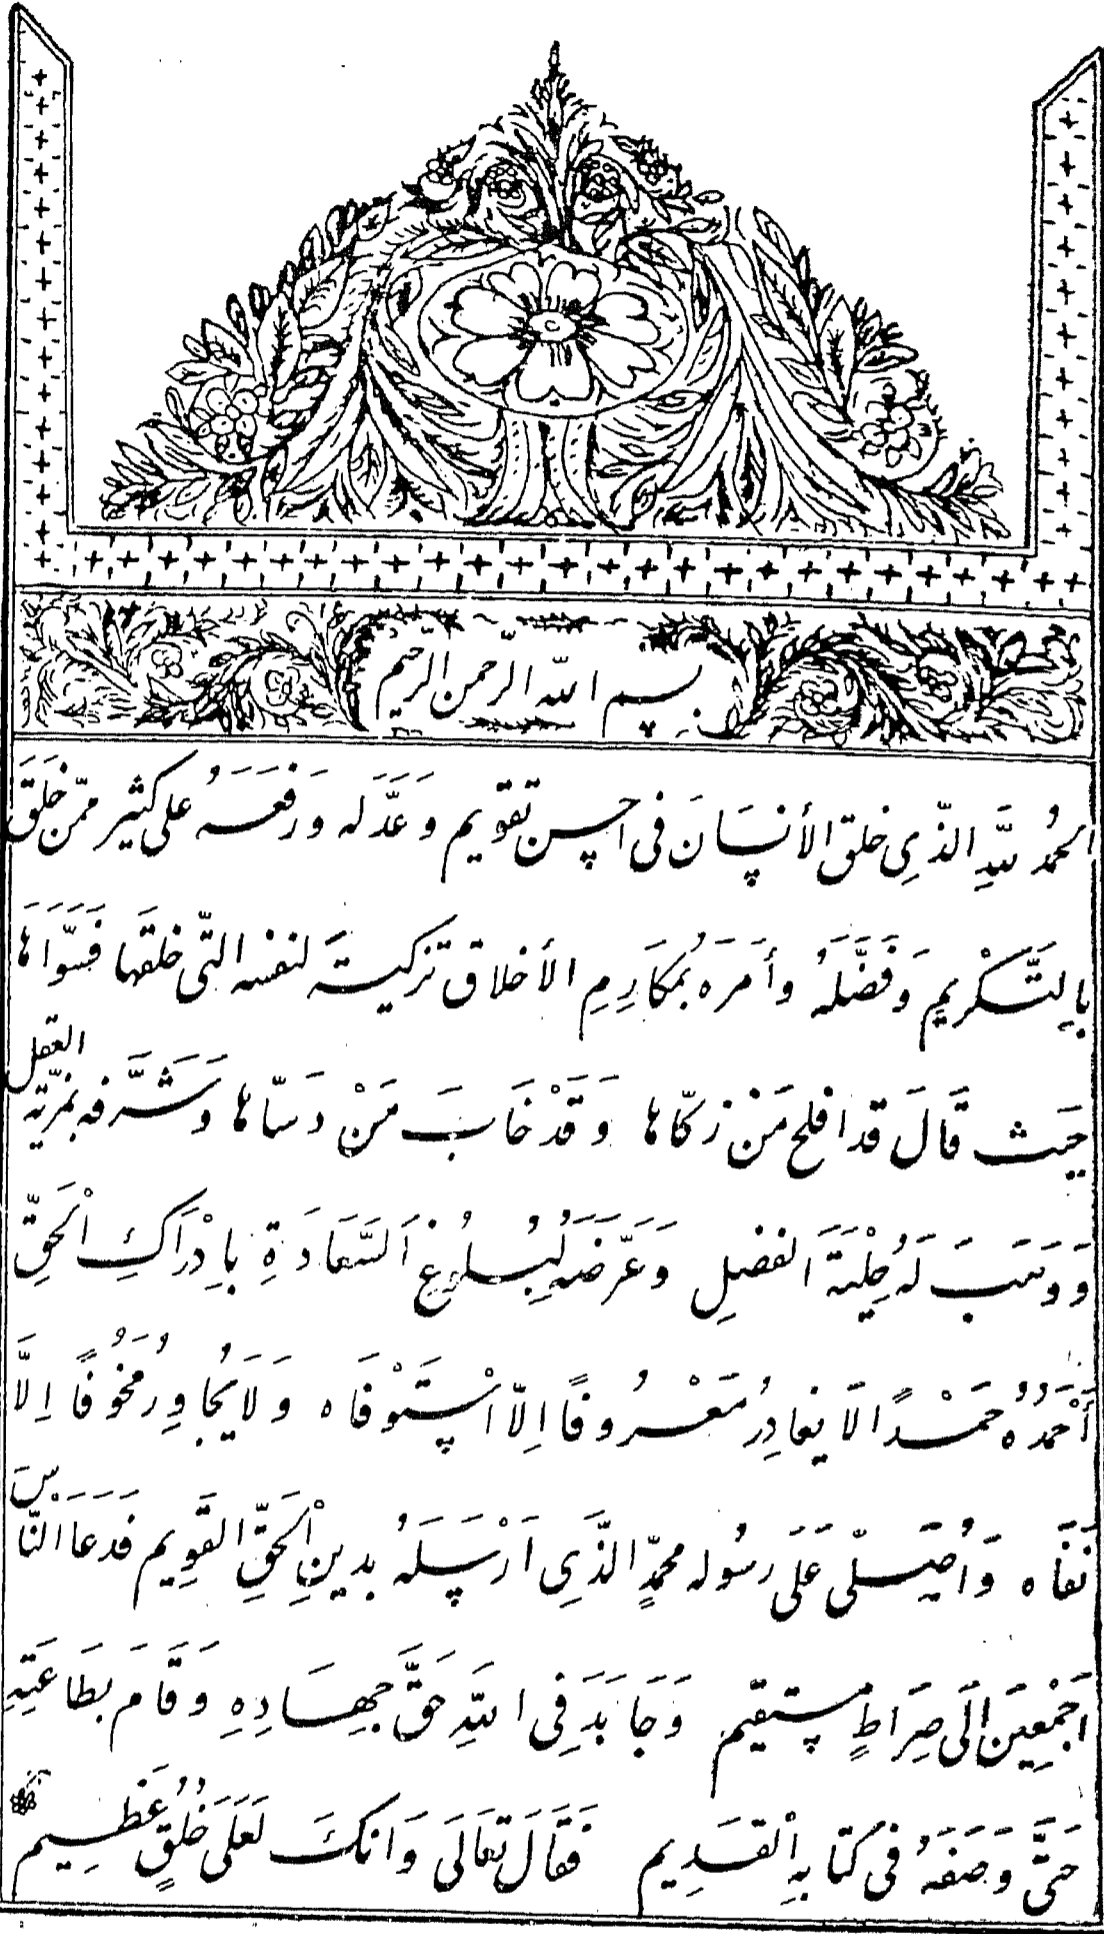 بسم الله الرحمن الرحيم
الحمدُ للهِ الذّي خلق الأنسَانَ في احسن تقويم وَعَدَّلَه وَرَفَعَهُ على كثير ممّن خَلَقَ
بِالتَّكْرِيمِ وَفَضَّلَهُ وأَمَرَه بمَكَارِمِ الأخلاق تزكيةً لنفسه التّي خلقَها فَسَوَّاهَا
حيَث قَالَ قد افلح مَنْ زكّاها وَقَدْ خَابَ مَنْ دَسّاها وَشَرَّفه بمزيّة العقل
وَوَهَبَ لَهُ حِلْيَةَ الفضلِ وَعَرَّضَه لِبُلوُغِ اَلسَّعَادَةِ بِاِدْرَاكِ الْحَقِّ
أَحْمَدُهُ حَمْدًا لَا يغادِرُ مَعْرُوفًا اِلّا اسْتَوْفَاه وَلَا يُجَاوِرُ مَخُوفًا اِلَّا
نَفَاه وَاُصَلّى عَلَى رسُوله محمدٍّ الذَّي اَرْسَلَهُ بدين الْحَقِّ القَوِيم فَدَعَا النَّاسَ
اَجْمَعِينَ اِلَى صِرَاطٍ مستقيم وَجَاهَدَ فِى اللهِ حَقَّ جِهَادِهِ وَقَامَ بطَاعَتِهِ
حَتَّى وَصَفَهُ فى كتَابِهِ الْقَدِيم فَقَالَ تَعَالَى وَانكَ لَعَلَى خُلُقٍ عَظِيم